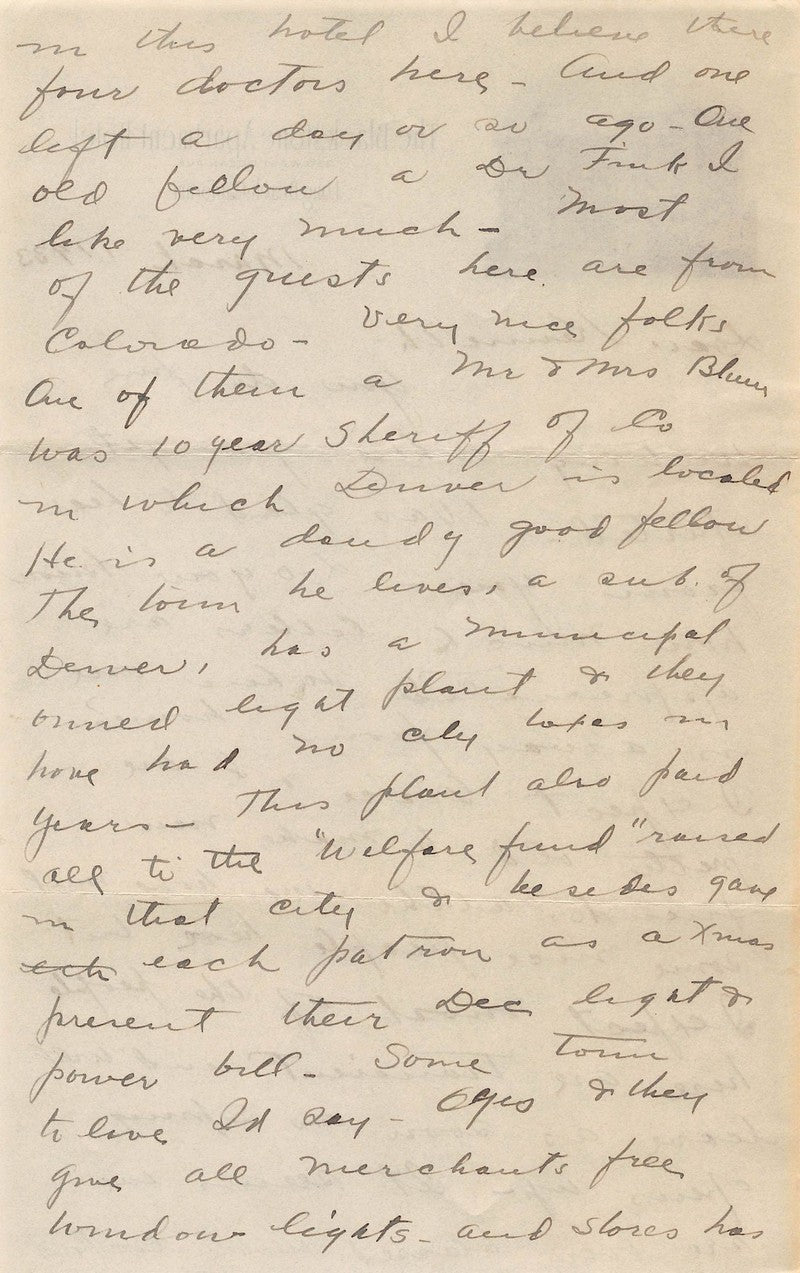 in this hotel I believe there
four doctors here - And one
left a day or so ago - One
old fellow a Dr Fink I
like very much - Most
of the guests here are from
Colorado - Very nice folks
One of them a Mr & Mrs Blum
was 10 year Sheriff of Co
in which Denver is located
He is a dandy good fellow
The town he lives, a sub. of
Denver, has a municipal
owned light plant & they
have had no city taxes in
years - This plant also paid
all to the "Welfare fund" raised
in that city & besides gave
each patron as a Xmas
present their Dec light &
power bill - Some town
to live I'd say - O yes & they
give all merchants free
window lights - and stores has